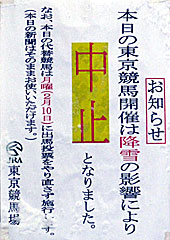 お知らせ
本日の東京競馬開催は降雪の影響により
中止
となりました。
なお、本日の代替競馬は月曜(2月10日)に出馬投票をやり直さず施行します。
(本日の新聞はそのままお使いいただけます。)
JRA 東京競馬場